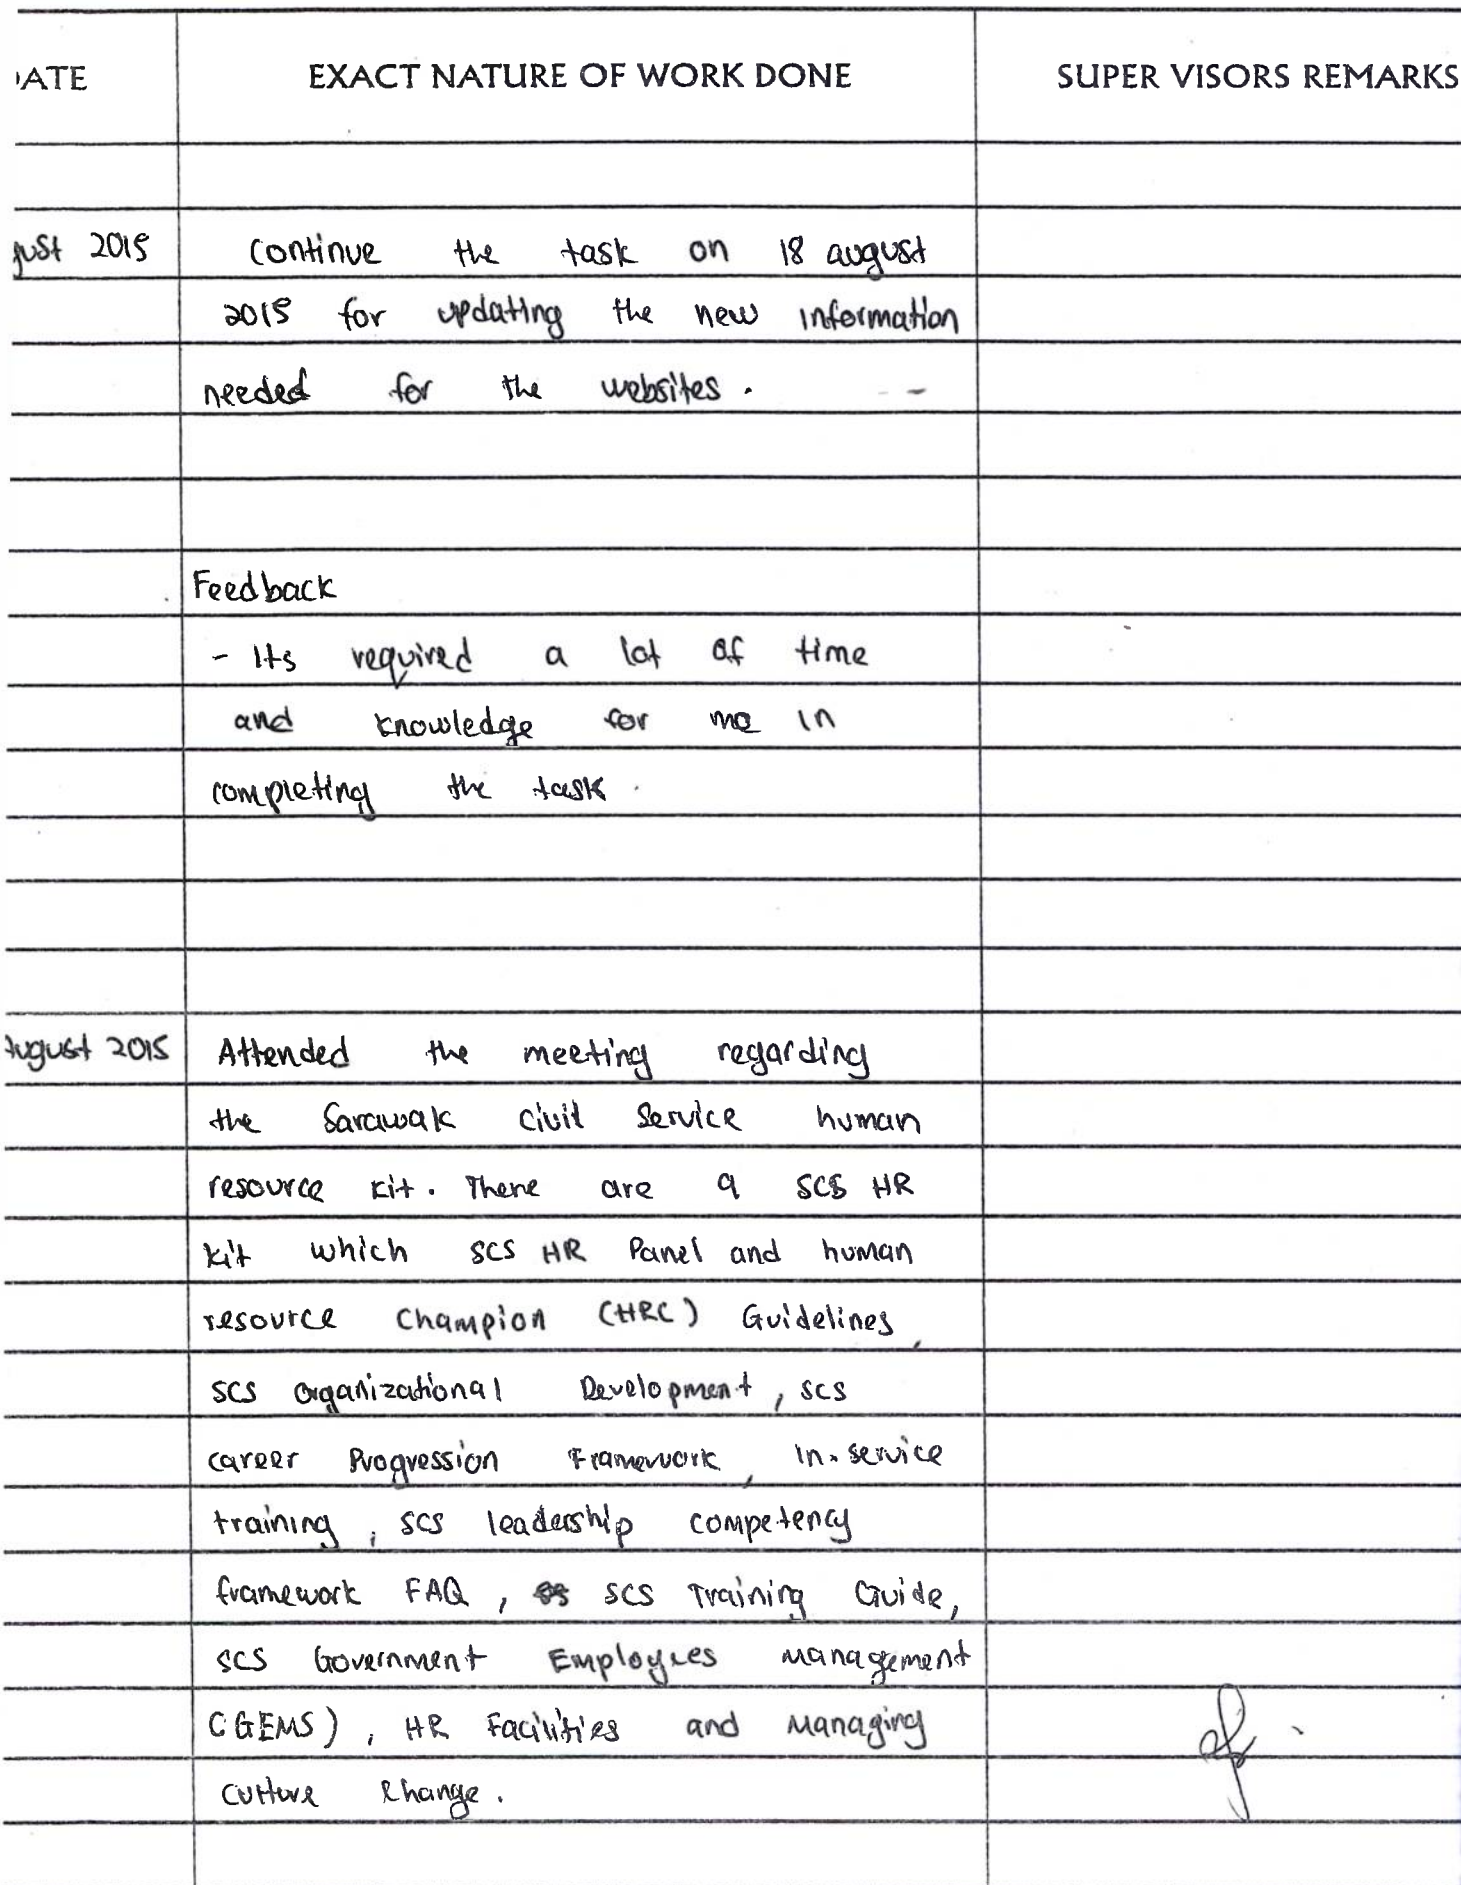 ATE EXACT NATURE OF WORK DONE SUPER VISORS REMARKS
gust 2015 Continue the task on 18 august
2015 for updating the new information
needed for the websites.
Feedback
- Its required a lot of time
and knowledge for me in
completing the task.
August 2015 Attended the meeting regarding
the Sarawak Civil Service human
resource kit. There are 9 SCS HR
kit which SCS HR Panel and human
resource Champion (HRC) Guidelines,
SCS Organizational Development, SCS
career Progression Framework, In-service
training, SCS leadership competency
framework FAQ, SCS Training Guide,
SCS Government Employees Management
CGEMS), HR Facilities and Managing
Culture Change.